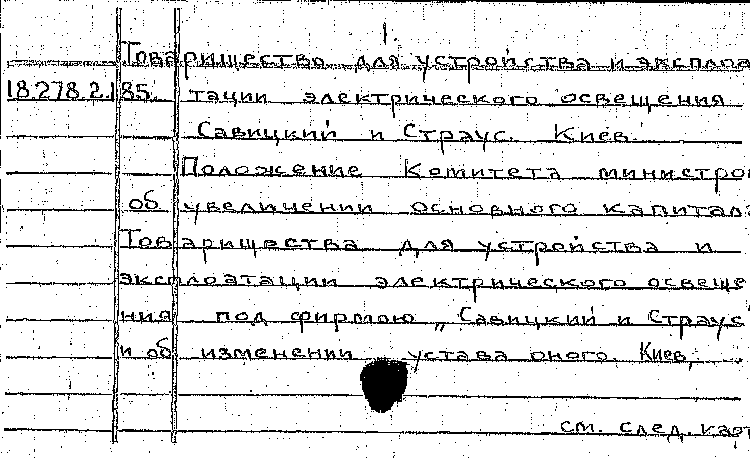 1.
Товарищество для устройства и эксплоа
18.278.2.185. тации электрического освещения
Савицкий и Страус. Киев.
Положение Комитета министро
об увеличении основного капитала
Товарищества для устройства и
эксплоатации электрического освеще
ния под фирмою „Савицкий и Страус"
и об изменении устава оного. Киев,
см. след. карт